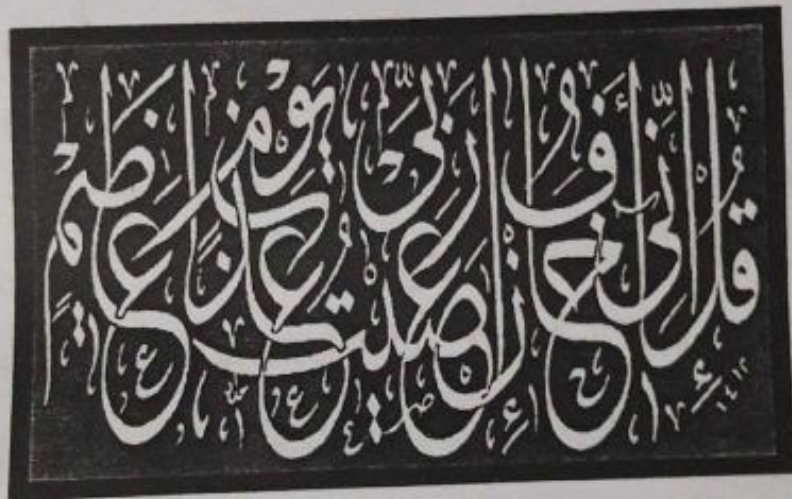 قُلْ إِنِّي أَخَافُ إِنْ عَصَيْتُ رَبِّي عَذَابَ يَوْمٍ عَظِيمٍ